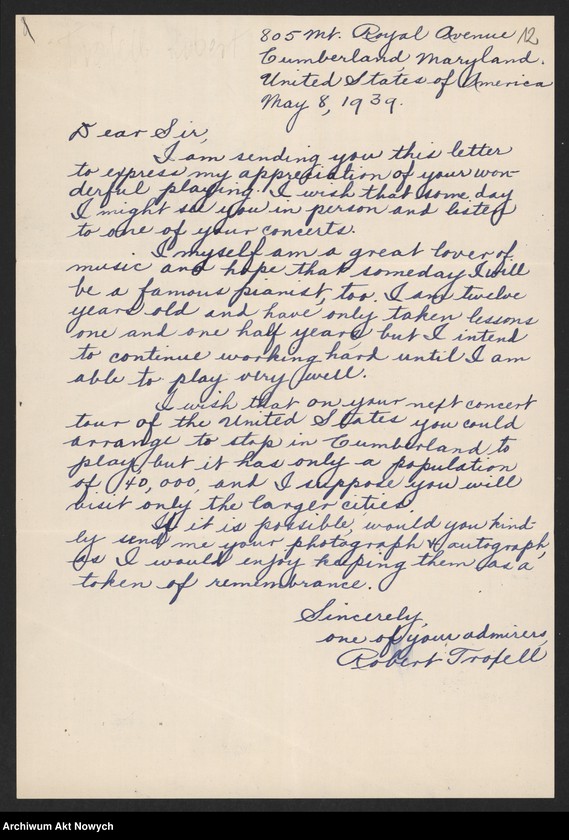 12
805 Mt. Royal Avenue
Cumberland, Maryland.
United States of America
May 8, 1939.
Dear Sir,
I am sending you this letter
to express my appreciation of your won-
derful playing. I wish that some day
I might see you in person and listen
to one of your concerts.
I myself am a great lover of
music and hope that someday I will
be a famous pianist, too. I am twelve
years old and have only taken lessons
one and one half years but I intend
to continue working hard until I am
able to play very well.
I wish that on your next concert
tour of the United States you could
arrange to stop in Cumberland to
play, but it has only a population
of 40,000, and I suppose you will
visit only the larger cities.
If it is possible, would you kind-
ly send me your photograph & autograph,
as I would enjoy keeping them as a
token of remembrance.
Sincerely,
one of your admirers,
Robert Troxell
Archiwum Akt Nowych